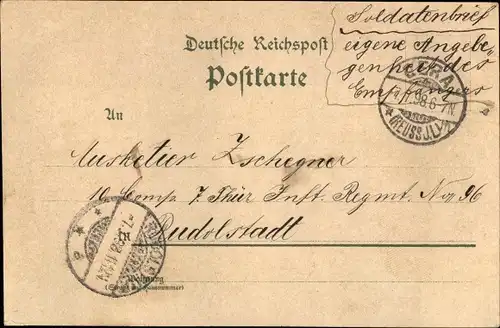 Soldatenbrief
eigene Angele-
genheit des
Empfängers
Deutsche Reichspost
Postkarte
GERA
98 6-7N.
(REUSS J.L.)
An
Musketier Zschegner
10. Comp. 7. Thür. Inft. Regmt. No. 96
in
Rudolstadt
Wohnung
(Straße und Hausnummer)